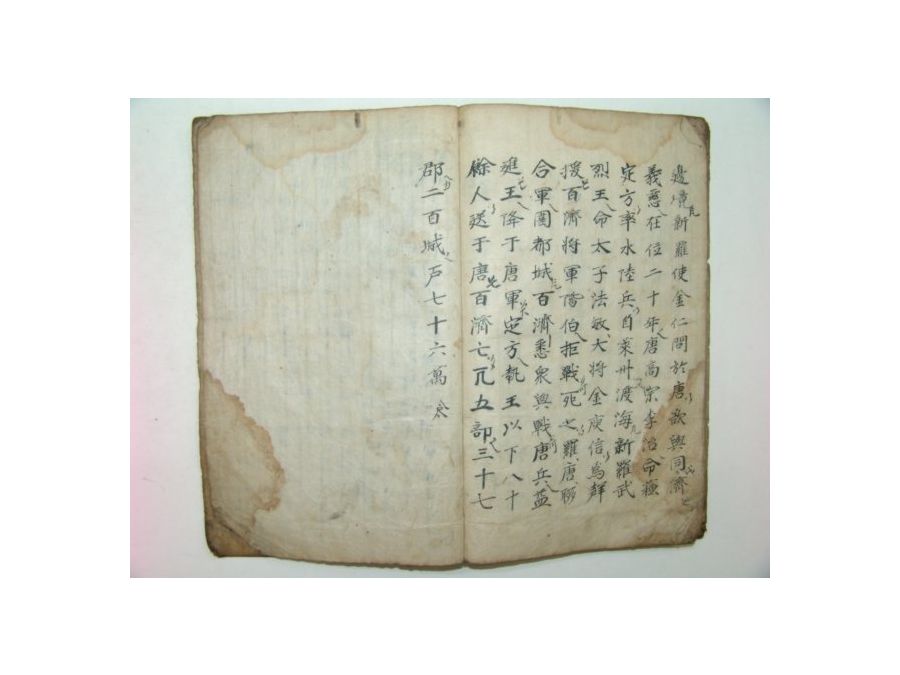 邊境新羅使金仁問於唐欲與同濟
義慈在位二十年唐高宗李治命蘇
定方率水陸兵自萊州渡海新羅武
烈王命太子法敏大將金庾信爲聲
援百濟將軍階伯拒戰死之羅唐聯
合軍圍都城百濟悉衆與戰唐兵益
進王降于唐軍定方執王以下八十
餘人送于唐百濟亡凡五部三十七
郡二百城戶七十六萬